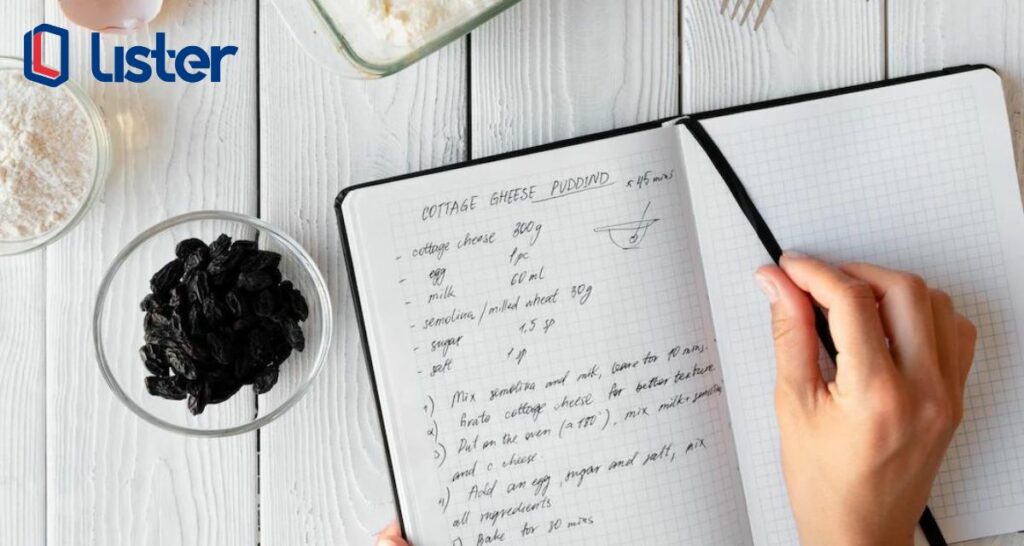 Lister
COTTAGE GHEESE PUDDIND × 45 mins
- cottage cheese 300g
- egg 1pc
- milk 60 ml
- semolina / milled wheat 30g
- sugar 1,5 sp
- salt 1 sp
1) Mix semolina and milk, leave for 10 mins.
2) Grate cottage cheese for better texture
3) Put on the oven (≈ 180°), mix milk+semolina
and c cheese
4) Add an egg, sugar and salt, mix
all ingredients
Bake for 30 mins